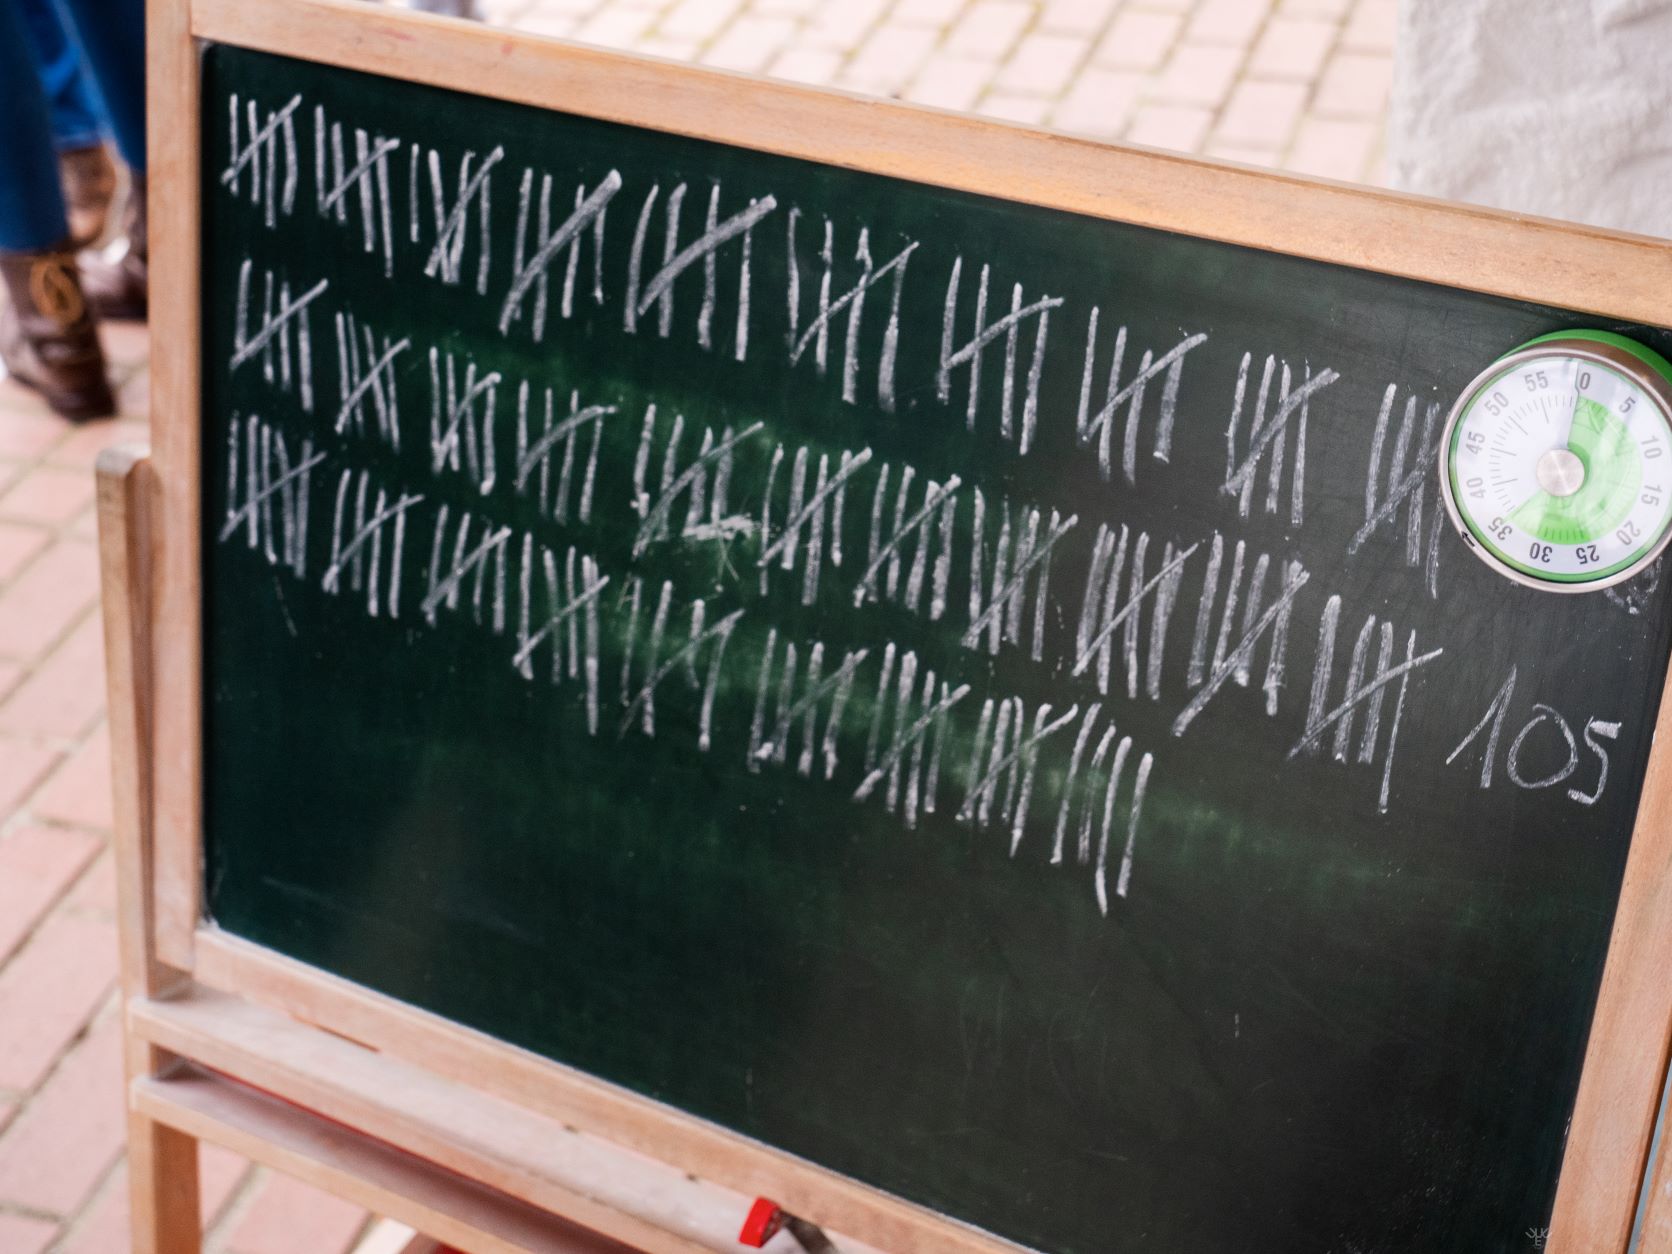 0 5 10 15 20 25 30 35 40 45 50 55
105